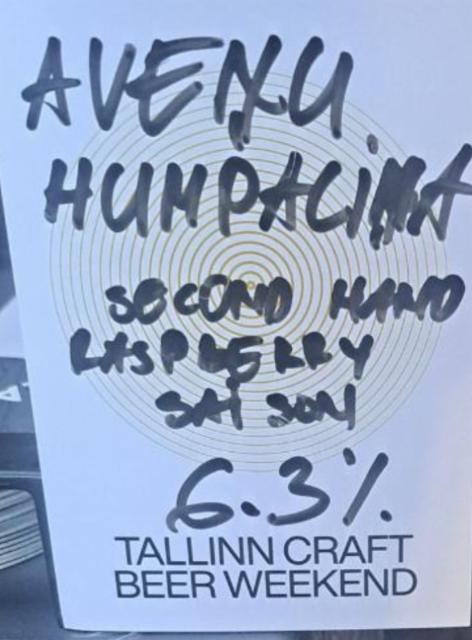 AVEŅU
HUMPALIŅA
SECOND HAND
RASPBERRY
SAISON
6.3%
TALLINN CRAFT
BEER WEEKEND